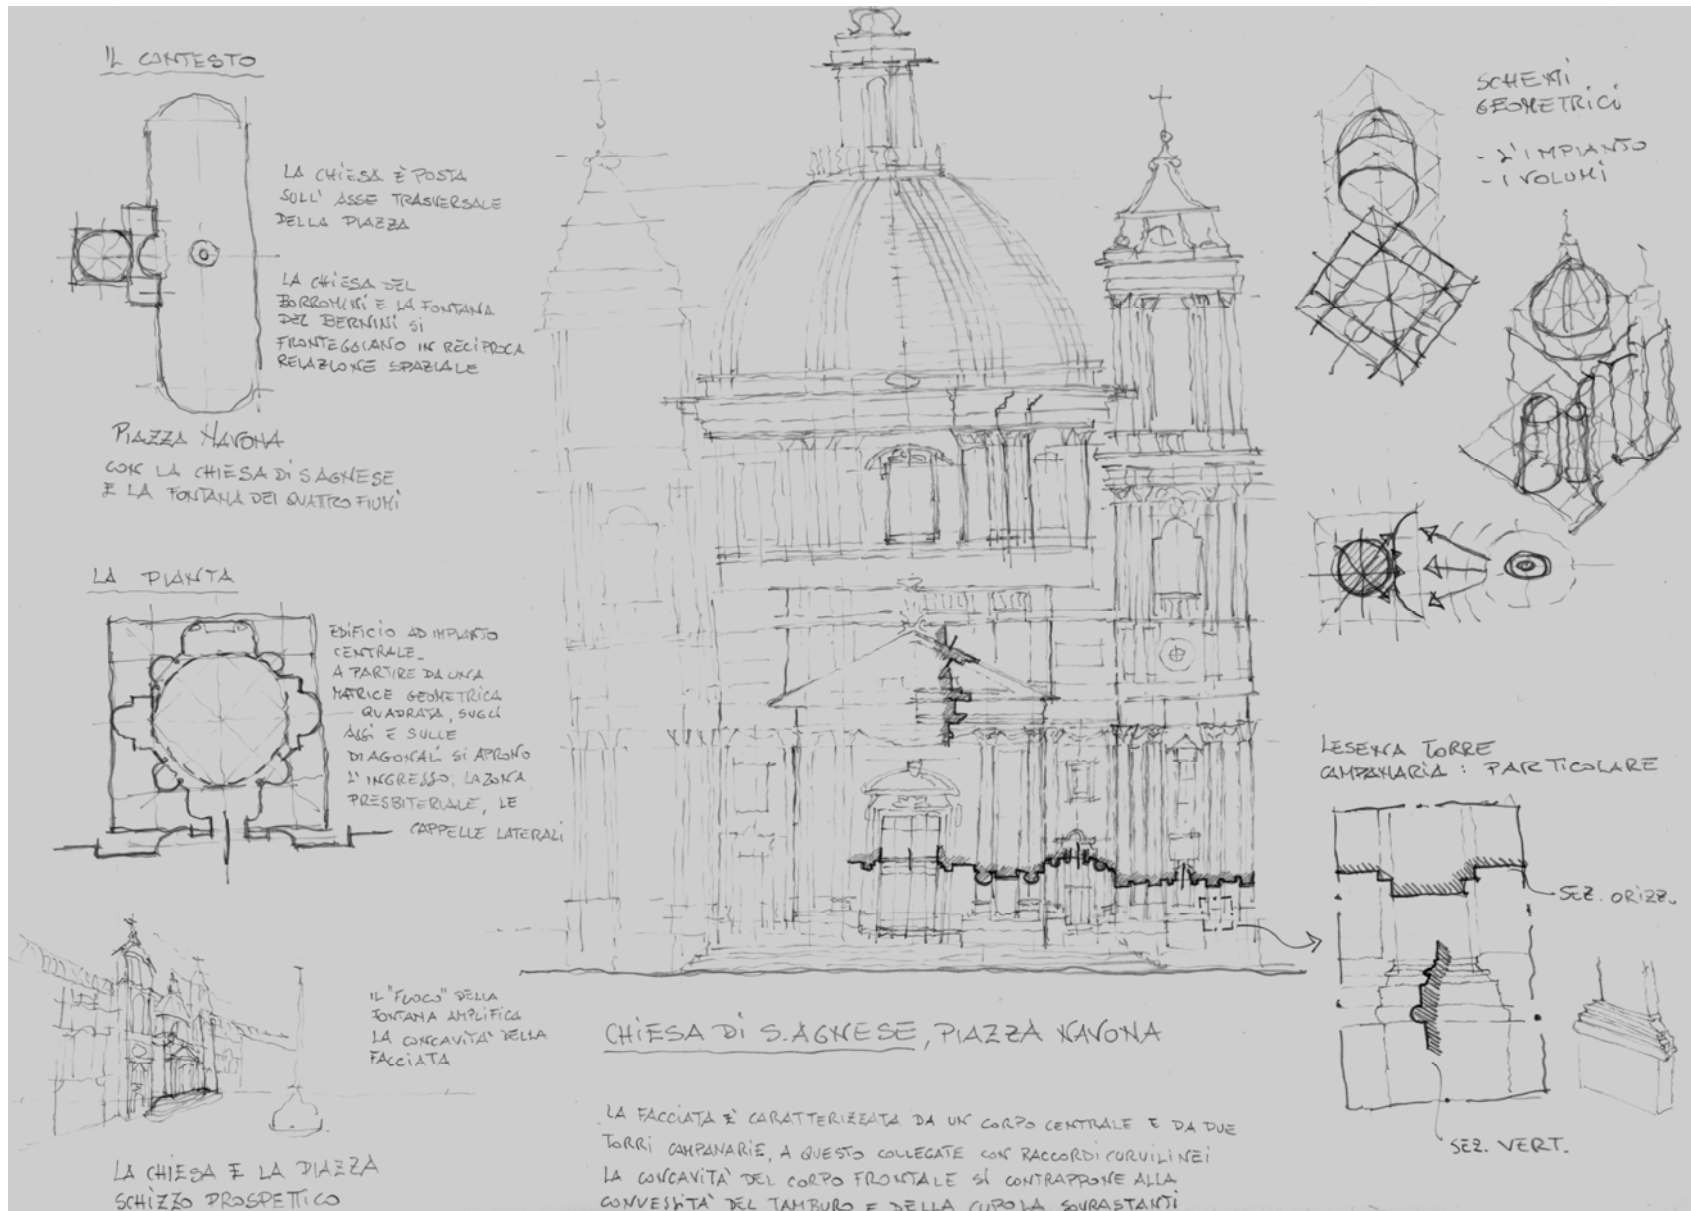 IL CONTESTO
LA CHIESA È POSTA
SULL' ASSE TRASVERSALE
DELLA PIAZZA
LA CHIESA DEL
BORROMINI E LA FONTANA
DEL BERNINI SI
FRONTEGGIANO IN RECIPROCA
RELAZIONE SPAZIALE
PIAZZA NAVONA
CON LA CHIESA DI S AGNESE
E LA FONTANA DEI QUATTRO FIUMI
LA PIANTA
EDIFICIO AD IMPIANTO
CENTRALE_
A PARTIRE DA UNA
MATRICE GEOMETRICA
QUADRATA, SUGLI
ASSI E SULLE
DIAGONALI SI APRONO
L'INGRESSO, LA ZONA
PRESBITERIALE, LE
CAPPELLE LATERALI
IL "FUOCO" DELLA
FONTANA AMPLIFICA
LA CONCAVITA' DELLA
FACCIATA
LA CHIESA E LA PIAZZA
SCHIZZO PROSPETTICO
CHIESA DI S. AGNESE, PIAZZA NAVONA
LA FACCIATA È CARATTERIZZATA DA UN CORPO CENTRALE E DA DUE
TORRI CAMPANARIE, A QUESTO COLLEGATE CON RACCORDI CURVILINEI
LA CONCAVITA' DEL CORPO FRONTALE SI CONTRAPPONE ALLA
CONVESSITA' DEL TAMBURO E DELLA CUPOLA SOVRASTANTI
SCHEMI
GEOMETRICI
- L'IMPIANTO
- I VOLUMI
LESENA TORRE
CAMPANARIA : PARTICOLARE
SEZ. ORIZZ.
SEZ. VERT.